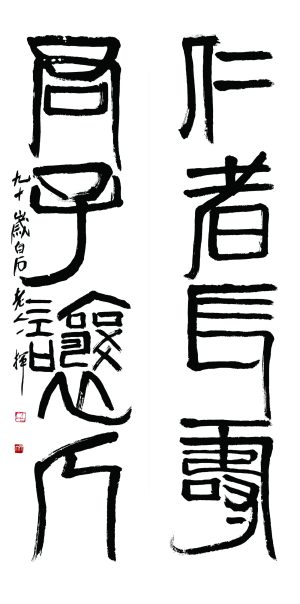 仁者長壽
君子讓人
九十歲白石老人一揮